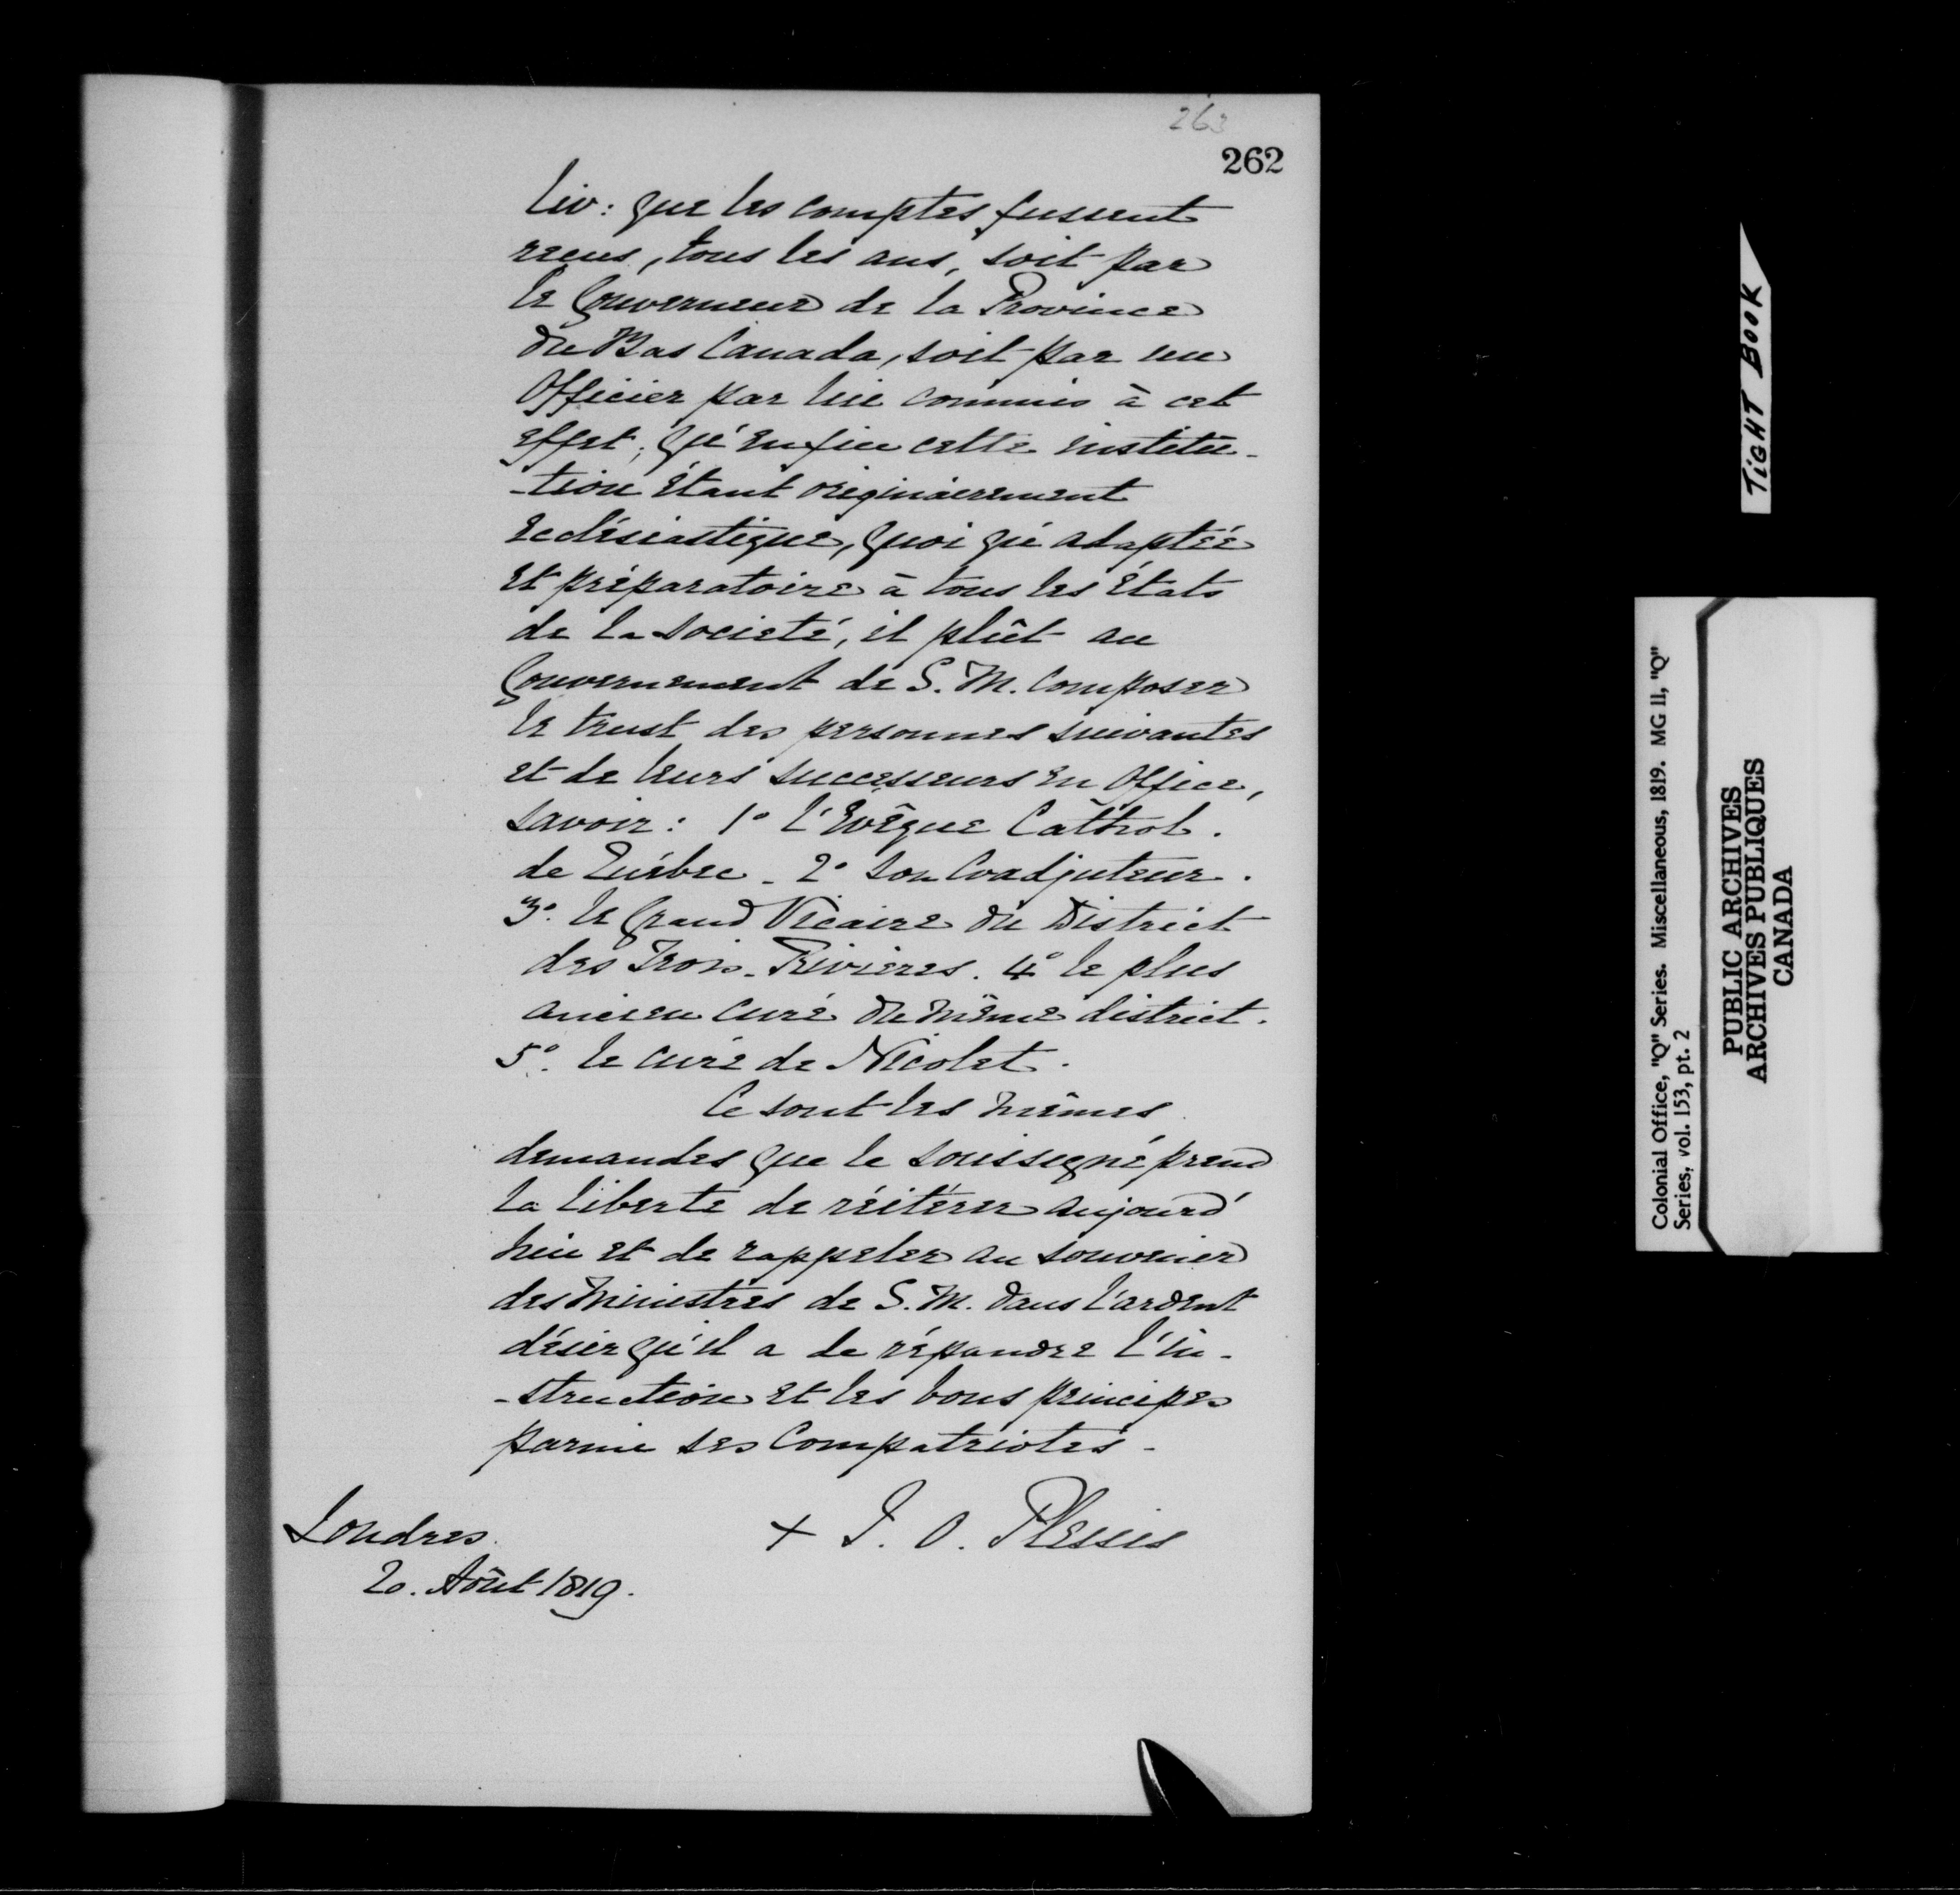 263
262
liv: que les comptes fussent
recus, tous les ans, soit par
le Gouverneur de la Province
du Bas Canada, soit par un
Officier par lui commis à cet
effet; qu'enfin cette institu-
-tion étant originairement
ecclésiastique, quoi qu'adaptée
et préparatoire à tous les états
de la societé, il plût au
Gouvernement de S. M. composer
le trust des personnes suivantes
et de leurs successeurs en office,
savoir: 1° l'Evêque Cathol.
de Québec - 2° son Coadjuteur.
3°. le Grand Vicaire du District
des Trois-Rivieres. 4° le plus
ancien curé du même district.
5°. le curé de Nicolet.
Ce sont les mêmes
demandes que le soussigné prend
la liberté de réitérer aujourd'
hui et de rappeler au souvenir
des Ministres de S. M. dans l'ardent
désir qu'il a de répandre l'in-
-struction et les bons principes
parmi ses Compatriotes -
+ J. O. Plessis
Londres.
20. Août 1819.
TIGHT BOOK
Colonial Office, "Q" Series. Miscellaneous, 1819. MG 11, "Q"
Series, vol. 153, pt. 2
PUBLIC ARCHIVES
ARCHIVES PUBLIQUES
CANADA